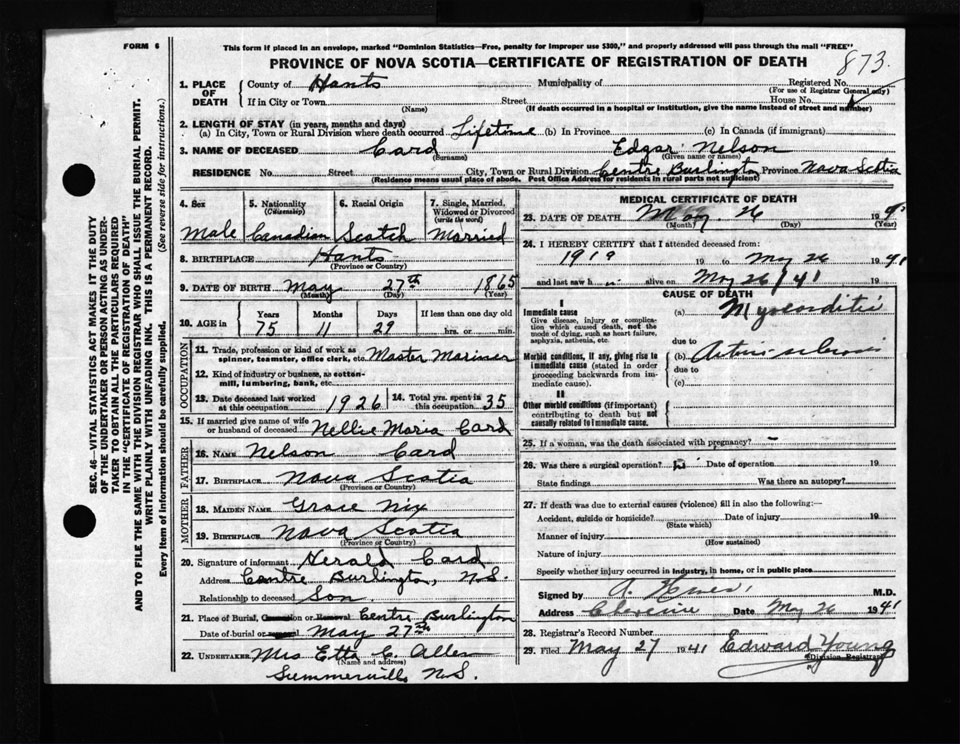 FORM 6
This form if placed in an envelope, marked "Dominion Statistics—Free, penalty for improper use $300," and properly addressed will pass through the mail "FREE"
PROVINCE OF NOVA SCOTIA—CERTIFICATE OF REGISTRATION OF DEATH
873
1. PLACE OF DEATH
County of Hants Municipality of Registered No.
(For use of Registrar General only)
If in City or Town Street House No.
(Name) (If death occurred in a hospital or institution, give the name instead of street and number)
2. LENGTH OF STAY (in years, months and days)
(a) In City, Town or Rural Division where death occurred Lifetime (b) In Province (c) In Canada (if immigrant)
3. NAME OF DECEASED Card Edgar Nelson
(Surname) (Given name or names)
RESIDENCE No. Street City, Town or Rural Division Centre Burlington Province Nova Scotia
(Residence means usual place of abode. Post Office Address for residents in rural parts not sufficient)
4. Sex 5. Nationality (Citizenship) 6. Racial Origin 7. Single, Married, Widowed or Divorced (write the word)
Male Canadian Scotch Married
8. BIRTHPLACE Hants
(Province or Country)
9. DATE OF BIRTH May 27th 1865
(Month) (Day) (Year)
10. AGE in Years Months Days If less than one day old
75 11 29 hrs. or min.
OCCUPATION
11. Trade, profession or kind of work as spinner, teamster, office clerk, etc. Master Mariner
12. Kind of industry or business, as cotton-mill, lumbering, bank, etc.
13. Date deceased last worked at this occupation 1926 14. Total yrs. spent in this occupation 35
15. If married give name of wife or husband of deceased Nellie Maria Card
FATHER
16. NAME Nelson Card
17. BIRTHPLACE Nova Scotia
(Province or Country)
MOTHER
18. MAIDEN NAME Grace Nix
19. BIRTHPLACE Nova Scotia
(Province or Country)
20. Signature of informant Herald Card
Address Centre Burlington, N.S.
Relationship to deceased Son.
21. Place of Burial, Cremation or Removal Centre Burlington
Date of burial or removal May 27th
22. UNDERTAKER Mrs Etta C. Allen
(Name and address)
Summerville N.S.
MEDICAL CERTIFICATE OF DEATH
23. DATE OF DEATH May 26 19
(Month) (Day) (Year)
24. I HEREBY CERTIFY that I attended deceased from:
19 to May 26 1941
and last saw h alive on May 26/41
CAUSE OF DEATH
I
Immediate cause (a)
Give disease, injury or complication which caused death, not the mode of dying, such as heart failure, asphyxia, asthenia, etc.
due to
Morbid conditions, if any, giving rise to immediate cause (stated in order proceeding backwards from immediate cause). (b)
due to
(c)
II
Other morbid conditions (if important) contributing to death but not causally related to immediate cause.
25. If a woman, was the death associated with pregnancy? -
26. Was there a surgical operation? Date of operation 19
State findings Was there an autopsy?
27. If death was due to external causes (violence) fill in also the following:—
Accident, suicide or homicide? Date of injury 19
(State which)
Manner of injury
(How sustained)
Nature of injury
Specify whether injury occurred in industry, in home, or in public place
Signed by M.D.
Address Date May 26 1941
28. Registrar's Record Number
29. Filed May 27 1941 Edward Young
(Division Registrar)
SEC. 46—VITAL STATISTICS ACT MAKES IT THE DUTY
OF THE UNDERTAKER OR PERSON ACTING AS UNDER-
TAKER TO OBTAIN ALL THE PARTICULARS REQUIRED
IN THE "CERTIFICATE OF REGISTRATION OF DEATH"
AND TO FILE THE SAME WITH THE DIVISION REGISTRAR WHO SHALL ISSUE THE BURIAL PERMIT.
WRITE PLAINLY WITH UNFADING INK. THIS IS A PERMANENT RECORD.
Every item of information should be carefully supplied. (See reverse side for instructions.)